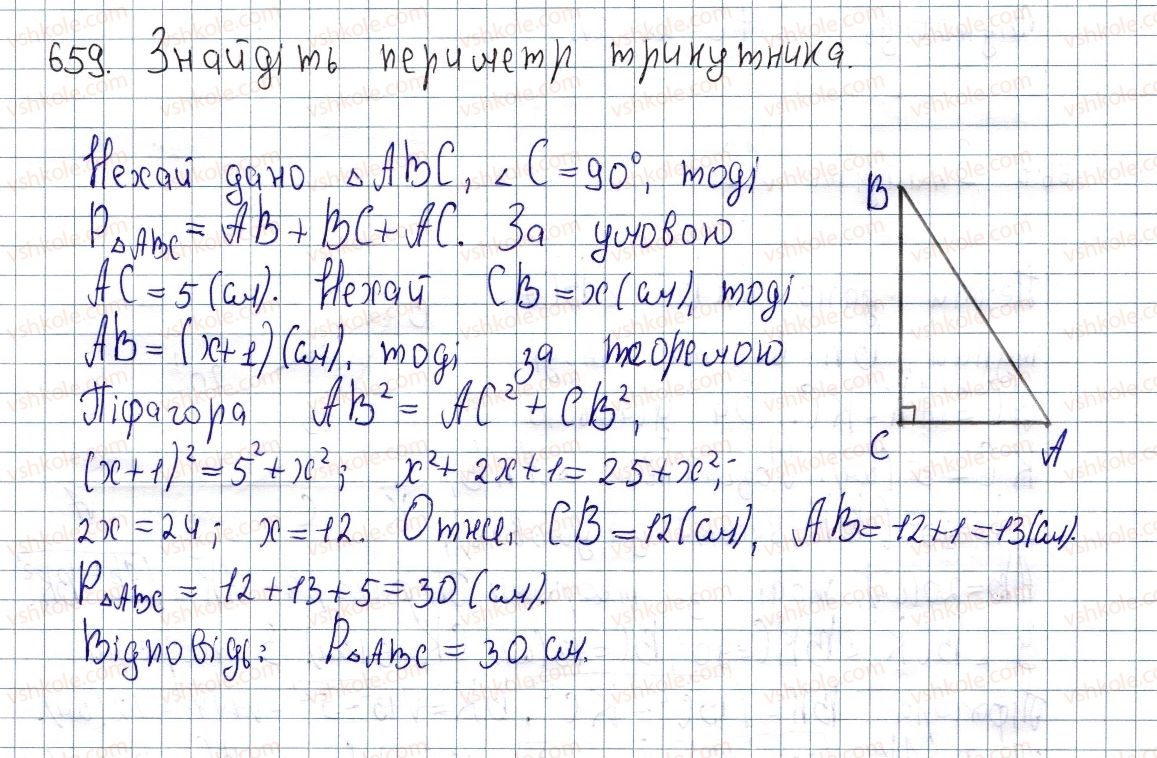 659. Знайдіть периметр трикутника.
Нехай дано △ABC, ∠C = 90°, тоді
P△ABC = AB + BC + AC. За умовою
AC = 5 (см). Нехай CB = x (см), тоді
AB = (x+1) (см), тоді за теоремою
Піфагора AB² = AC² + CB²,
(x+1)² = 5² + x²; x² + 2x + 1 = 25 + x²;
2x = 24; x = 12. Отже, CB = 12 (см), AB = 12+1 = 13 (см).
P△ABC = 12 + 13 + 5 = 30 (см).
Відповідь: P△ABC = 30 см.
B
C
A